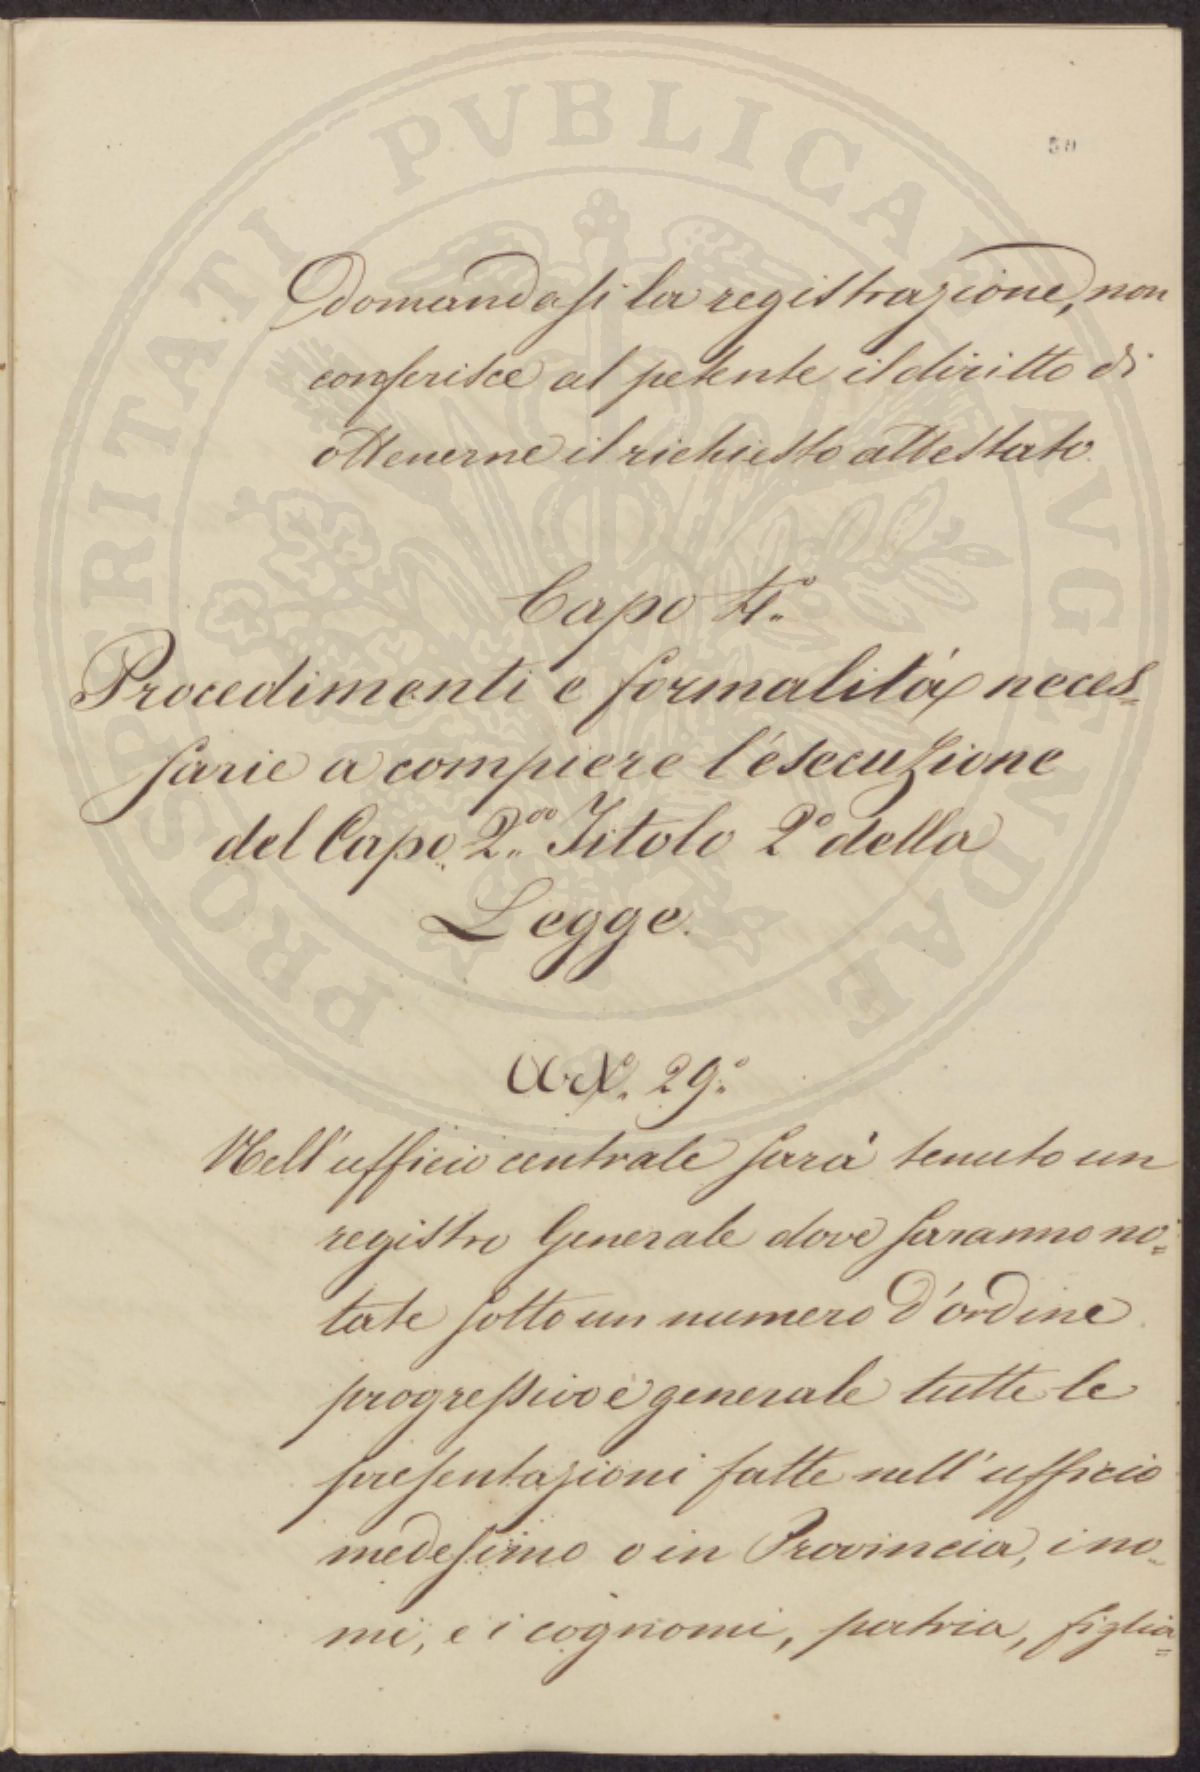 50
Domandasi la registrazione, non
conferisce al petente il diritto di
ottenerne il richiesto attestato.
Capo 4.°
Procedimenti e formalità neces=
sarie a compiere l'esecuzione
del Capo 2.do Titolo 2° della
Legge.
Art.° 29.°
Nell'ufficio centrale sarà tenuto un
registro Generale dove saranno no=
tate sotto un numero d'ordine
progressivo e generale tutte le
presentazioni fatte nell'ufficio
medesimo o in Provincia, i no=
mi, e i cognomi, patria, figlia=
PROSPERITATI PVBLICAE AVGENDAE